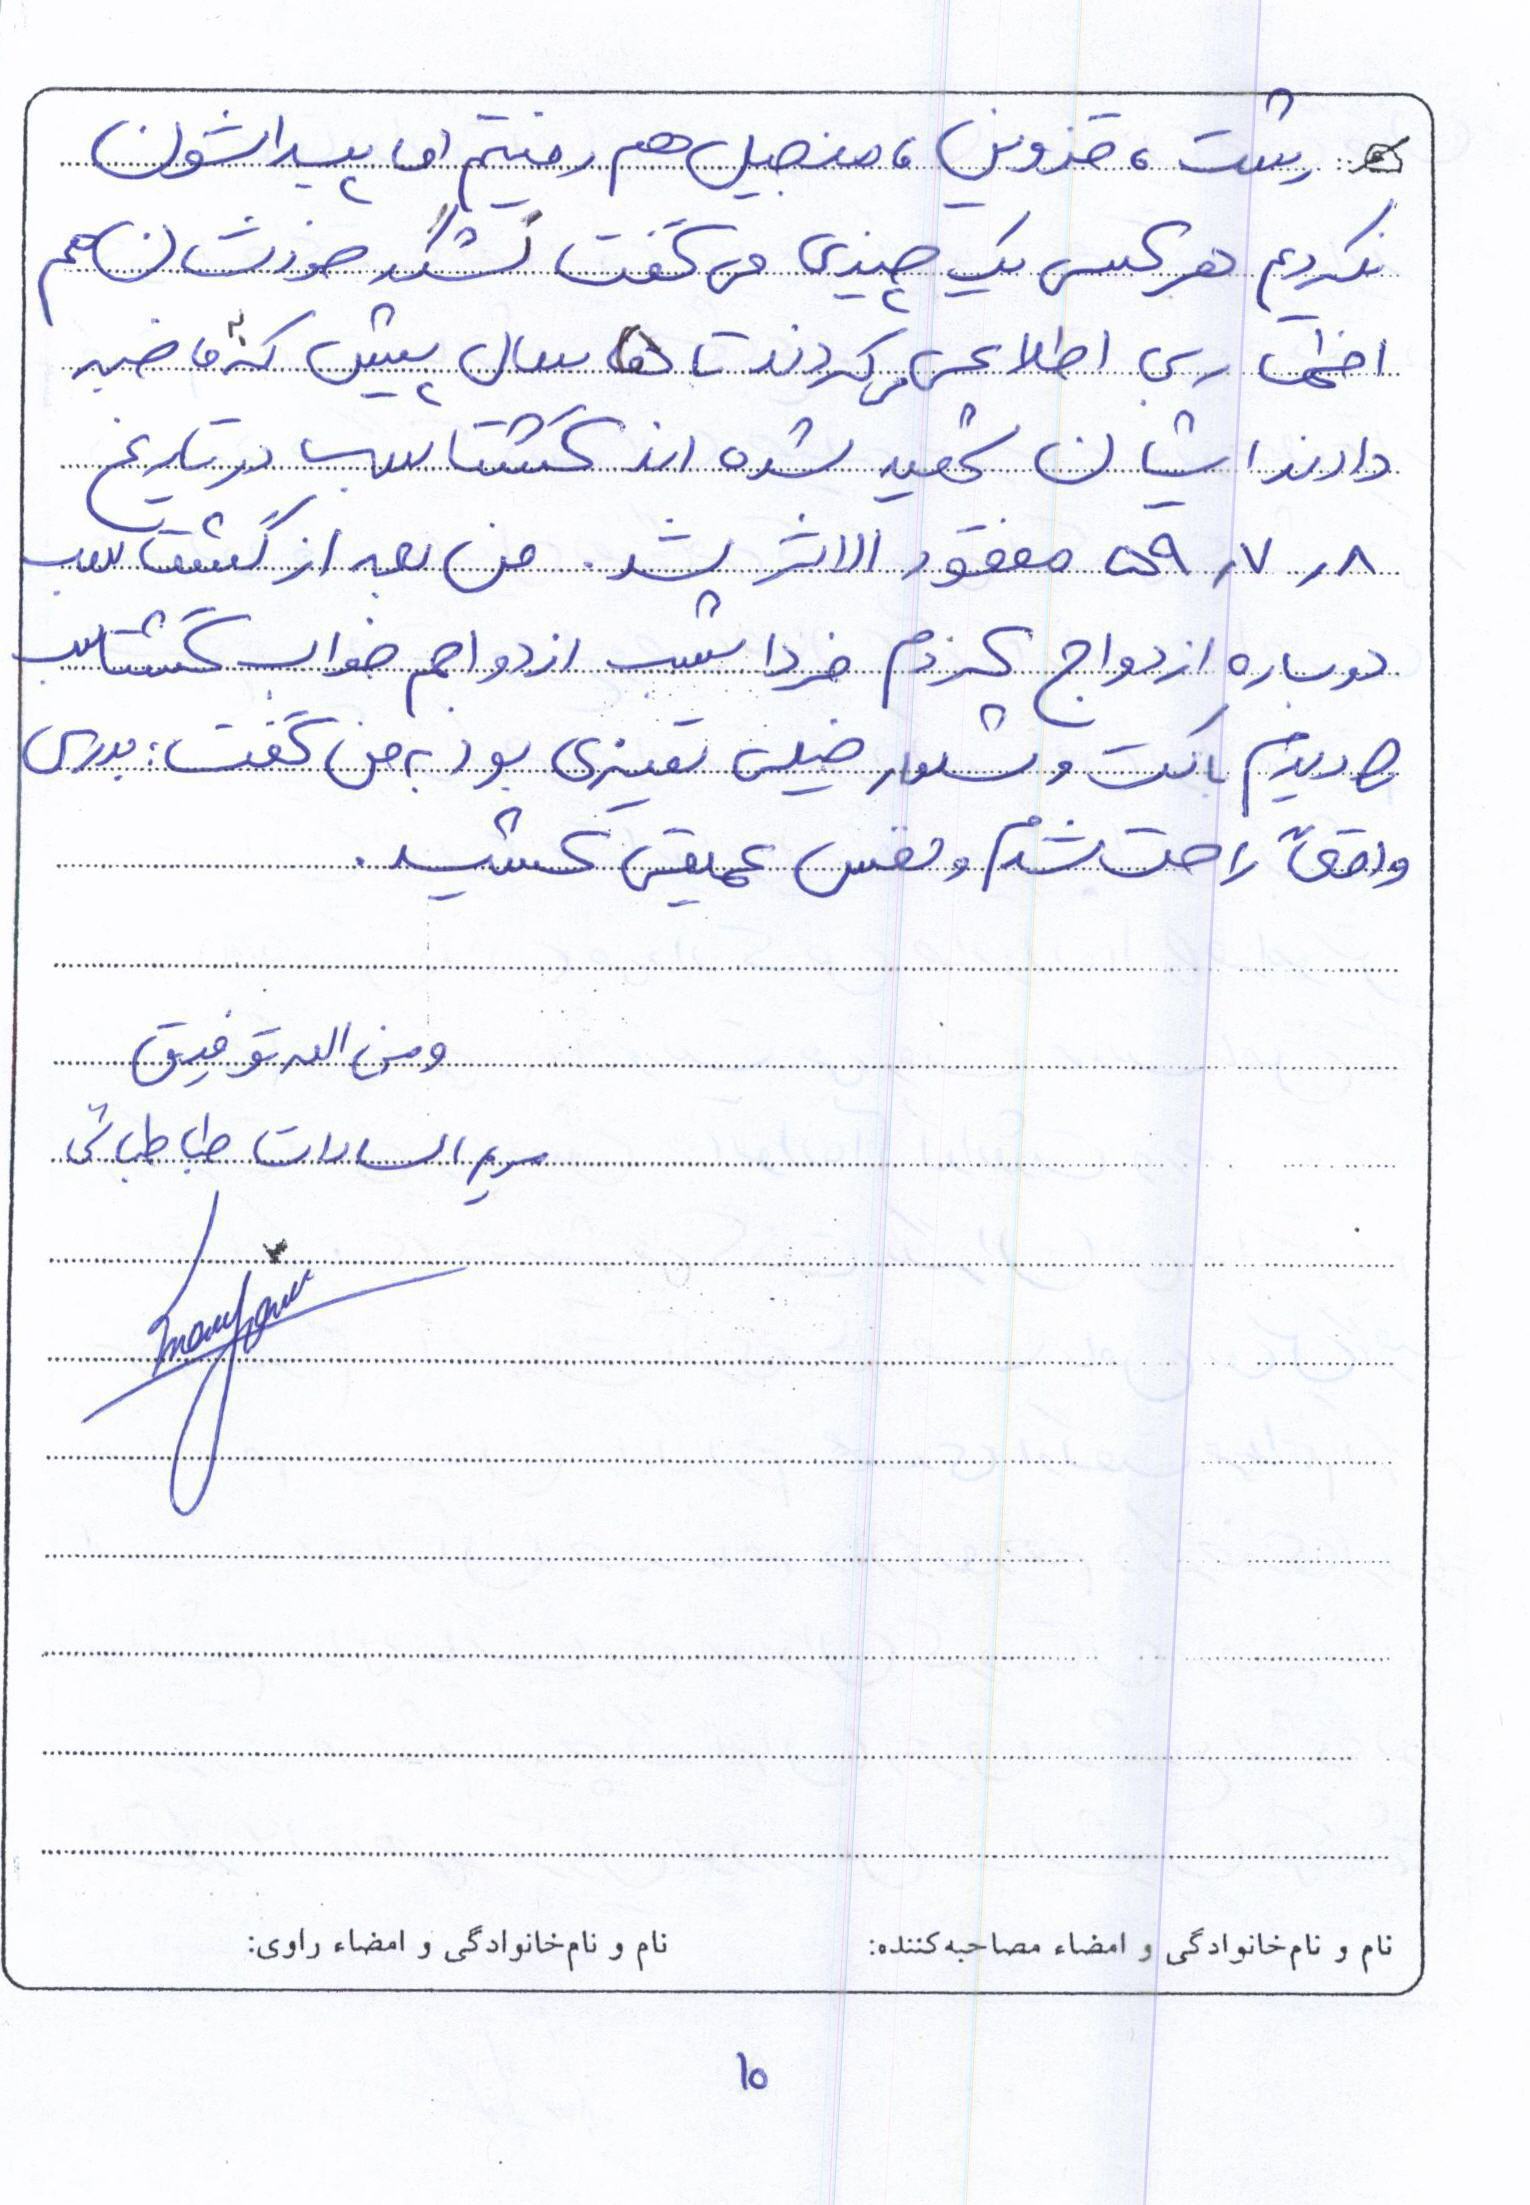 رشت، قزوین، منجیل هم رفتیم اما پیداشون
نکردیم هر کسی یک چیزی می گفت لشگر خودشان هم
اظهار بی اطلاعی می کردند تا سال پیش که به ما خبر
دادند ایشان شهید شده اند گشتاسب در تاریخ
۵۹٫۷٫۸ مفقود الاثر شد. من بعد از گشتاسب
دوباره ازدواج کردم فردا شب ازدواجم خواب گشتاسب
دیدم با کت و شلوار خیلی تمیزی بود به من گفت: بدری
واقعاً راحت شدم و نفس عمیقی کشید.
ومن الله توفیق
مریم السادات طباطبائی
نام و نام‌خانوادگی و امضاء مصاحبه‌کننده: نام و نام‌خانوادگی و امضاء راوی:
۱۵